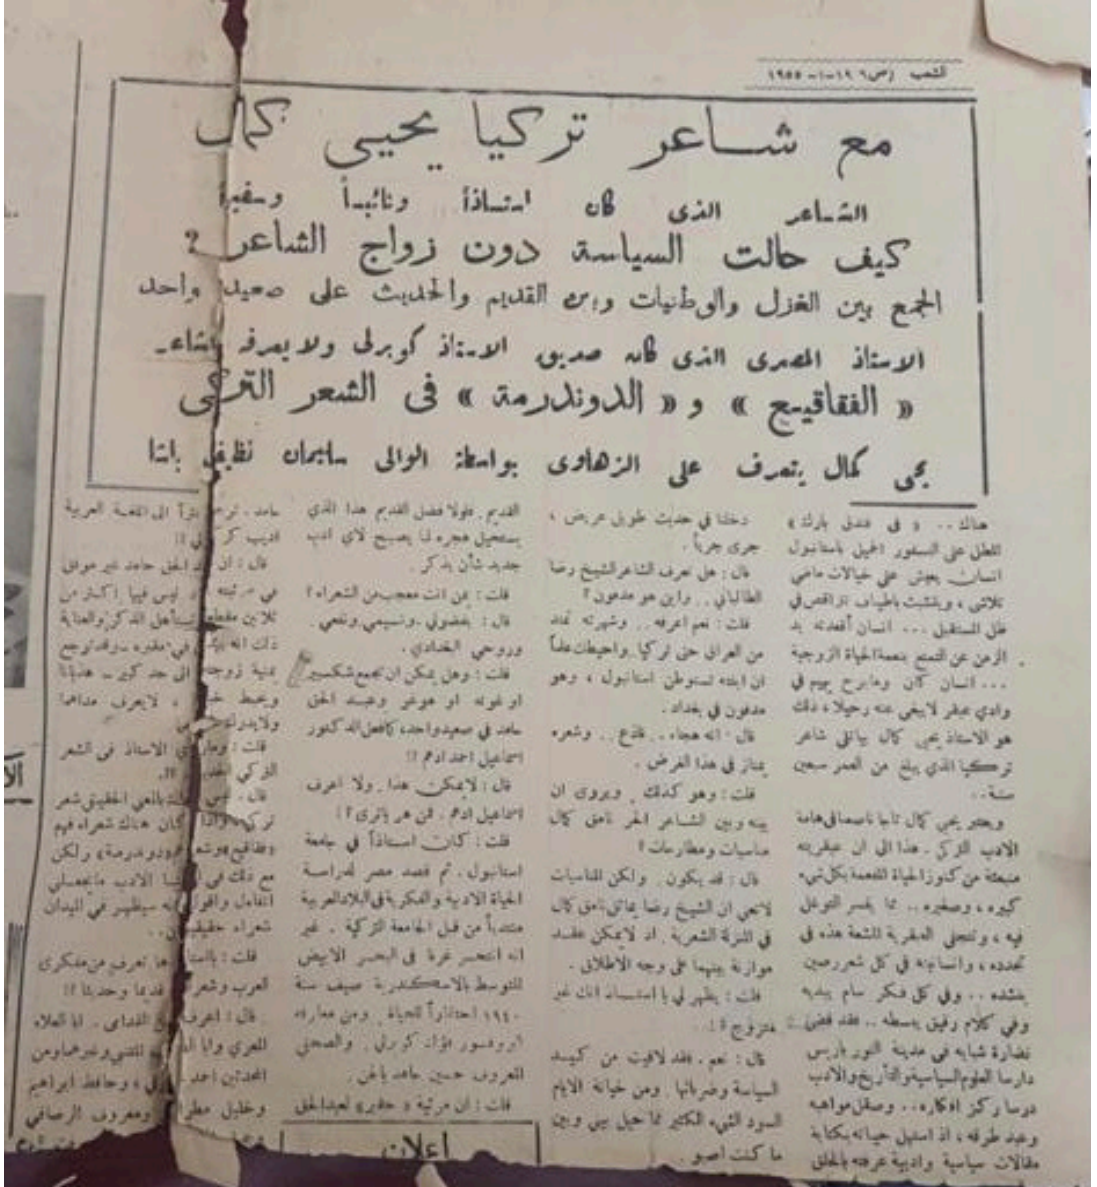 الشعب (ص٦) ١٩-١-١٩٥٥
مع شاعر تركيا يحيى كمال
الشاعر الذى كان استاذاً ونائباً وسفيراً
كيف حالت السياسة دون زواج الشاعر ؟
الجمع بين الغزل والوطنيات وبين القديم والحديث على صعيد واحد
الاستاذ المصرى الذى كان صديق الاستاذ كوبرلى ولا يعرفه الشاعر
« الفقاقيع » و « الدوندرمة » فى الشعر التركى
يحيى كمال يتعرف على الزهاوى بواسطة الوالى سليمان نظيف باشا
هناك . . « فى فندق بارك »
المطل على البسفور الجميل باستانبول
انسان يعيش على خيالات ماضي
تلاشى ، ويتشبث باطياف تتراقص في
ظل المستقبل ... انسان أقعدته يد
الزمن عن التمتع بنعمة الحياة الزوجية
... انسان كان ومابرح يهيم في
وادي عبقر لا يبغى عنه رحيلا ، ذلك
هو الاستاذ يحيى كمال بياتلي شاعر
تركيا الذي يبلغ من العمر سبعين
سنة . .
ويعتبر يحيى كمال تاجا ناصعا في هامة
الادب التركي . هذا الى ان عبقريته
منبعثة من كنوز الحياة المفعمة بكل شيء
كبيره ، وصغيره .. مما يفسر التوغل
فيه ، وتتجلى العبقرية المشعة هذه في
تجدده ، وانسانيته في كل شعر رصين
ينشده .. وفي كل فكر سام يبديه
وفي كلام رقيق يبسطه .. فقد قضى
نضارة شبابه في مدينة النور باريس
دارسا العلوم السياسية والتأريخ والادب
درسا ركز افكاره .. وصقل مواهبه
وعبد طرقه ، اذ استهل حياته بكتابة
مقالات سياسية وادبية عرفته بالخلق
دخلنا في حديث طويل عريض ،
جرى جرياً .
قال : هل تعرف الشاعر الشيخ رضا
الطالباني . . واين هو مدفون ؟
قلت : نعم اعرفه . . وشهرته تمتد
من العراق حتى تركيا . واحيطك علماً
ان ابنته تستوطن استانبول ، وهو
مدفون في بغداد .
قال : انه هجاء . . قاذع . . وشعره
يمتاز في هذا الغرض .
قلت : وهو كذلك . ويروى ان
بينه وبين الشاعر الحر نامق كمال
مناسبات ومطارحات !
قال : قد يكون . ولكن المناسبات
لاتعني ان الشيخ رضا يماثل نامق كمال
في المنزلة الشعرية . اذ لايمكن عقد
موازنة بينهما على وجه الاطلاق .
قلت : يظهر لي يا استاذ انك غير
متزوج ؟! .
قال : نعم . فقد لاقيت من كيد
السياسة وضرباتها . ومن خيانة الايام
السود الشيء الكثير مما حيل بيني وبين
ما كنت اصبو .
القديم . فلولا فضل القديم هذا الذي
يستحيل هجره لما يصبح لاي ادب
جديد شأن يذكر .
قلت : بمن انت معجب من الشعراء ؟
قال : بفضولي . ونسيمي ونفعي .
وروحي البغدادي .
قلت : وهل يمكن ان تجمع شكسبير
او غوته او هوغو وعبد الحق
حامد في صعيد واحد ، كما فعل الدكتور
اسماعيل احمد ادهم ؟!
قال : لايمكن هذا . ولا اعرف
اسماعيل ادهم . فمن هو ياترى ؟!
قلت : كان استاذاً في جامعة
استانبول . ثم قصد مصر لدراسة
الحياة الادبية والفكرية في البلاد العربية
منتدباً من قبل الجامعة التركية . غير
انه انتحر غرقا فى البحر الابيض
المتوسط بالاسكندرية صيف سنة
١٩٤٠ احتقاراً للحياة . ومن معارفه
البروفسور فؤاد كوبرلي . والصحفي
المعروف حسين جاهد يالجن .
قلت : ان مرثية « مقبر » لعبدالحق
اعلان
حامد . ترجمت نثراً الى اللغة العربية
اديب كر
قال : ان عبد الحق حامد غير موفق
في مرثيته ليس فيها اكثر من
ثلاثين مقطعا يستأهل الذكر والعناية
ذلك انه في « مقبره » وقد توجع
بمنية زوجته الى حد كبير - هذيانا
وخبط لايعرف مداهما
ولايدرك
قلت : ومارأي الاستاذ فى الشعر
التركي الحديث ؟!.
قال . ليس بالمعنى الحقيقي شعر
تركي . واذا كان هناك شعراء فهم
« فقاقيع » وشعر « دوندرمة » ولكن
مع ذلك في الادب مايجعلني
اتفاءل واقول انه سيظهر في الميدان
شعراء حقيقيون . .
قلت : يااستاذ تعرف من مفكري
العرب وشعرائهم قديما وحديثا ؟!
قال : اعرف من القدامى . ابا العلاء
المعري وابا المتنبي وغيرهما ومن
المحدثين احمد شوقي ، وحافظ ابراهيم
وخليل مطران ومعروف الرصافي